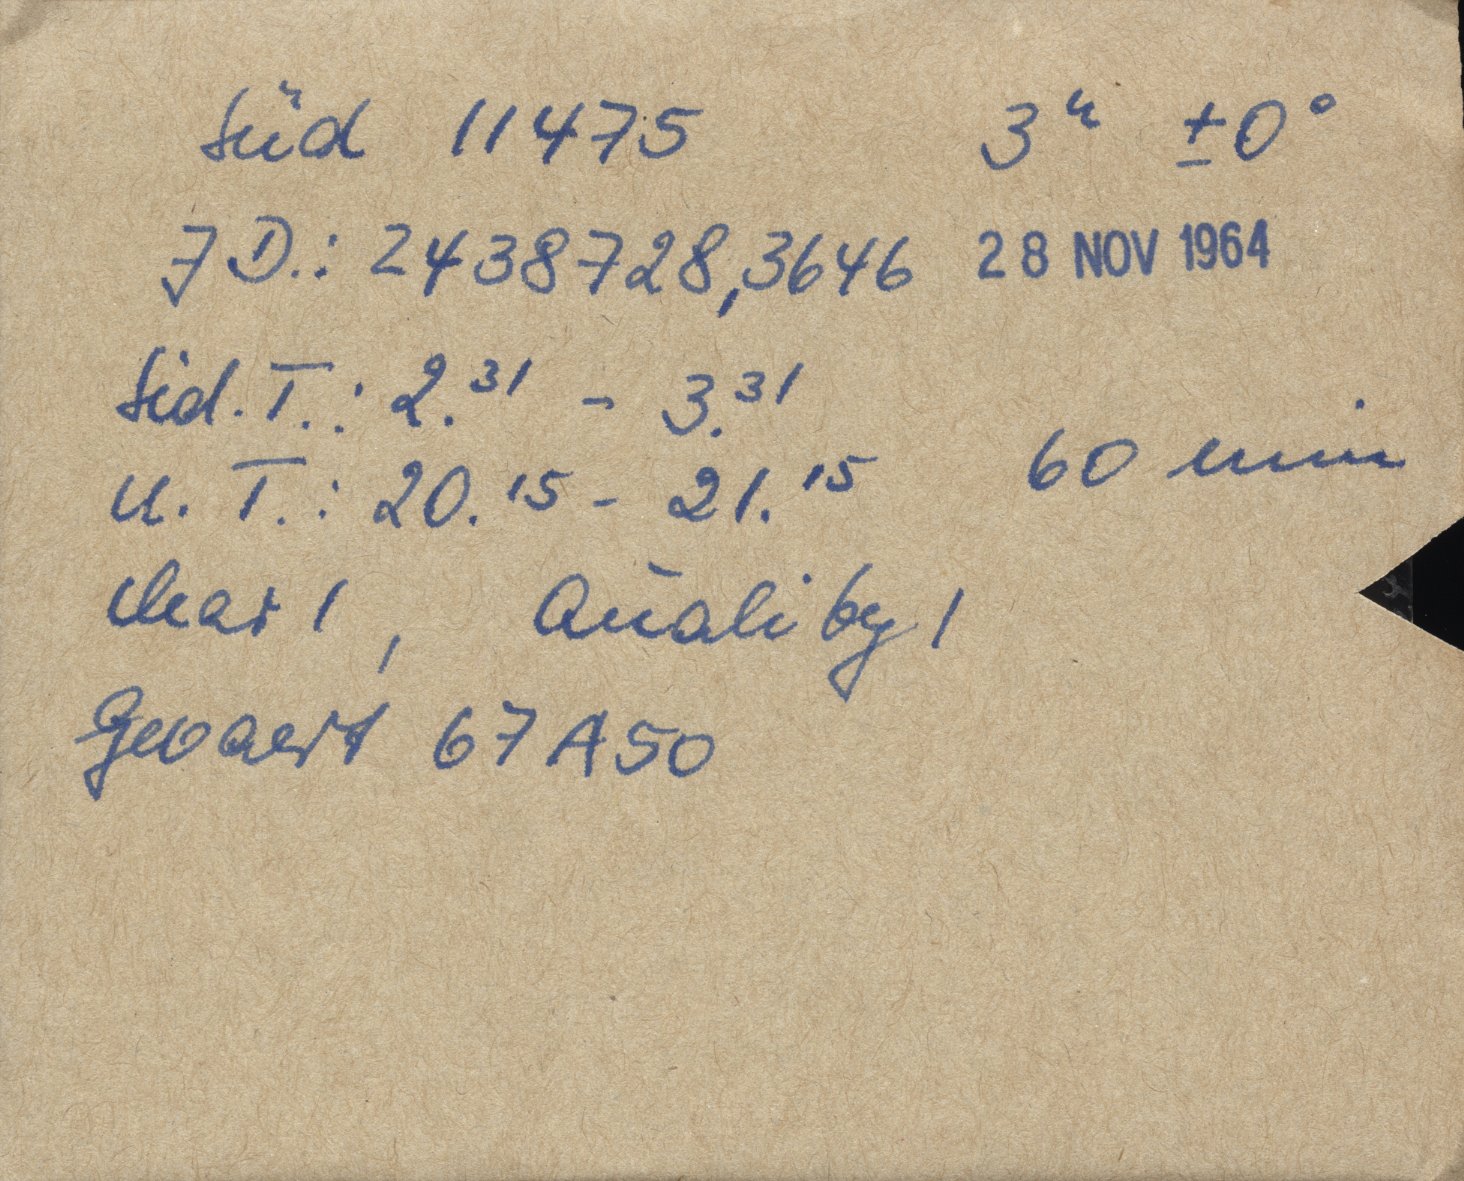 Süd 11475 3ʰ ±0°
J D.: 2438728,3646 28 NOV 1964
Sid. T.: 2.³¹ - 3.³¹
U. T.: 20.¹⁵ - 21.¹⁵ 60 min
clear 1, Quality 1
Gevaert 67A50